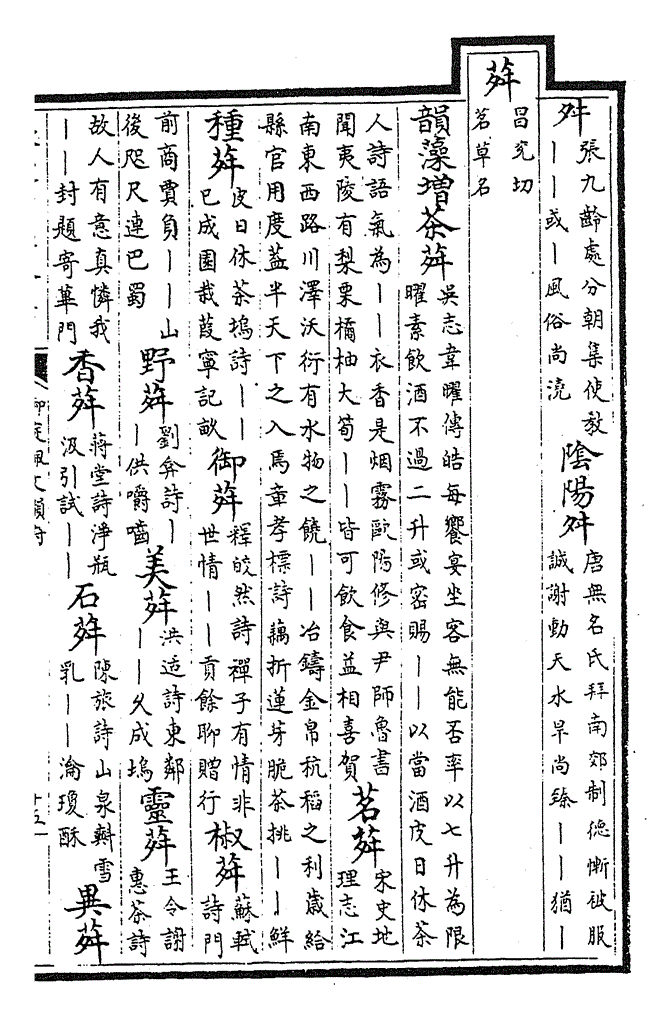 舛 張九齡處分朝集使敎
丨丨或丨風俗尚澆
陰陽舛 唐無名氏拜南郊制德慚被服
誠謝動天水旱尚臻丨丨猶丨
荈
昌兖切
茗草名
韻藻增茶荈 吳志韋曜傳皓每饗宴坐客無能否率以七升為限
曜素飲酒不過二升或密賜丨丨以當酒皮日休茶
人詩語氣為丨丨衣香是烟霧歐陽修與尹師魯書
聞夷陵有梨栗橘柚大筍丨丨皆可飲食益相喜賀
茗荈 宋史地
理志江
南東西路川澤沃衍有水物之饒丨丨冶鑄金帛秔稻之利歲給
縣官用度葢半天下之入焉章孝標詩藕折蓮芽脆茶挑丨丨鮮
種荈 皮日休茶塢詩丨丨
已成園栽葭寧記畝
御荈 釋皎然詩禪子有情非
世情丨丨貢餘聊贈行
椒荈 蘇軾
詩門
前商賈負丨丨山
後咫尺連巴蜀
野荈 劉弇詩丨
丨供嚼嚙
美荈 洪适詩東鄰
丨丨久成塢
靈荈 王令謝
惠茶詩
故人有意真憐我
丨丨封題寄蓽門
香荈 蔣堂詩淨瓶
汲引試丨丨
石荈 陳旅詩山泉㪺雪
乳丨丨瀹瓊酥
異荈